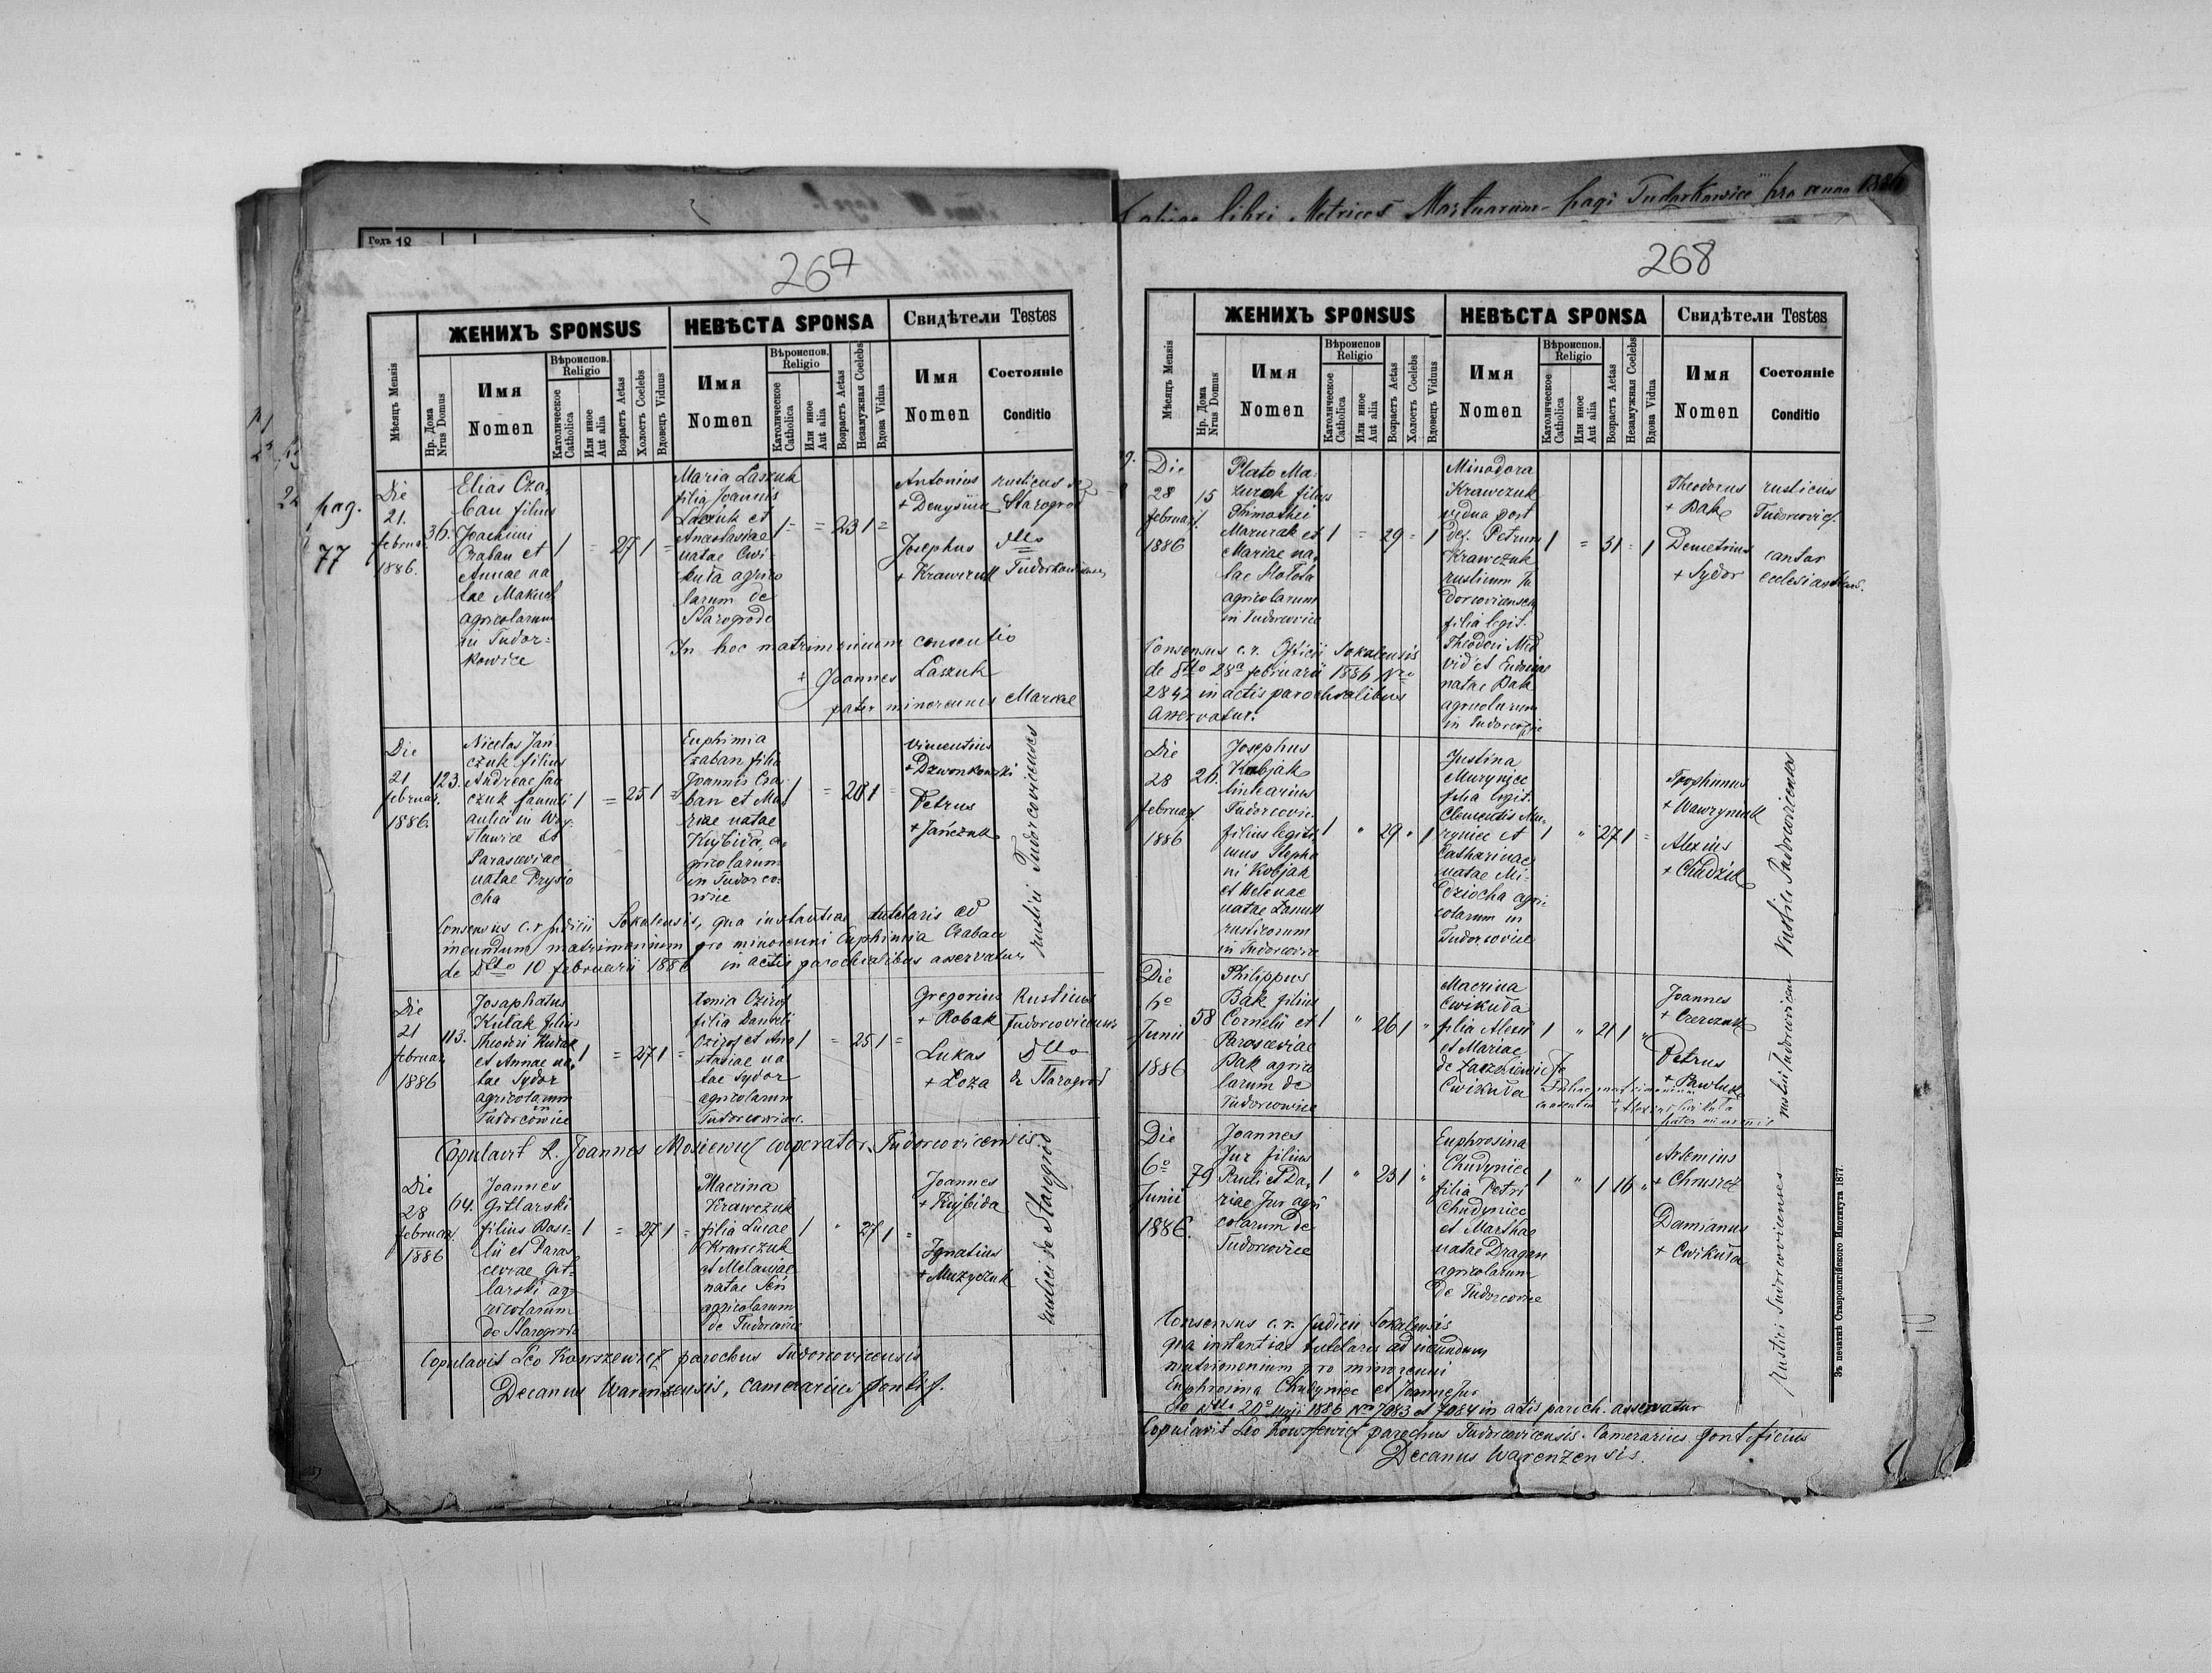 Copiae libri Metrices Mortuorum pagi Tudorkowice pro anno 1886
Годъ 18
267
pag.
77
ЖЕНИХЪ SPONSUS
НЕВѢСТА SPONSA
Свидѣтели Testes
Мѣсяцъ Mensis
Нр. Дома Nrus Domus
Имя Nomen
Вѣроиспов. Religio
Католическое Catholica
Или иное Aut alia
Возрастъ Aetas
Холостъ Coelebs
Вдовецъ Viduus
Имя Nomen
Вѣроиспов. Religio
Католическое Catholica
Или иное Aut alia
Возрастъ Aetas
Незамужная Coelebs
Вдова Vidua
Имя Nomen
Состояніе Conditio
Die
21.
februar.
1886.
36.
Elias Cza,
ban filius
Joachimi
Czaban et
Annae na
tae Makuch
agricolarum
in Tudor=
kowice
1 = 27 1 =
Maria Laszuk
filia Joannis
Laszuk et
Anastasiae
natae Cwi-
kuła agrico
larum de
Starogrod
1 = = 23 1 =
Antonius
+ Denysiuk
rusticus de
Starogrod
Josephus
+ Krawczuk
dtto
In hoc matrimonium consentio
+ Joannes Laszuk
pater minorennis Mariae
Die
21
februar.
1886.
123.
Nicetas Jań
czuk filius
Andreae Jań
czuk famuli
aulici in
et
Parasceviae
natae Prysio
cha
1 = 25 1 =
Euphimia
Czaban filia
Joannis Cza-
ban et Ma
riae natae
Kujbida, a-
gricolarum
in Tudorco-
wice
1 = 20 1 =
Vincentius
+ Dzwonkowski
Petrus
+ Jańczuk
rustici Tudorcovicenses
Consensus c.r. judicii Sokalensis, qua instantiae tutelaris ad
ineundum matrimonium pro minorenni Euphimia Czaban
de dtto 10 februarii 1886 in actis parochialibus asservatur
Die
21
februar.
1886
113.
Josaphatus
Kułak filius
Theodori Kułak
et Annae na,
tae Sydor
agricolarum
in
Tudorcowice
1 = 27 1 =
Xenia Ozirof
filia Danieli
Ozirof et Ana
stasiae na
tae Sydor
agricolarum
1 = 25 1 =
Gregorius
+ Robak
Rusticus
Tudorcovicensis
Lukas
+ Łoza
dtto
de Starogrod
Copulavit R. Joannes Mosiewicz cooperator Tudorcovicensis
Die
28
februar.
1886
64.
Joannes
Gitlarski
filius Basi-
lii et Paras
ceviae Git-
larski ag-
ricolarum
de Starogrod
1 = 27 1 =
Macrina
Krawczuk
filia Lucae
Krawczuk
et Melaniae
natae Seń
agricolarum
de Tudorcowice
1 " 27 1 =
Joannes
+ Kujbida
Ignatius
+ Muzyczuk
rustici de Starogrod
Copulavit Leo Kowszewicz parochus Tudorcovicensis
Decanus Warenzensis, camerarius pontif.
268
ЖЕНИХЪ SPONSUS
НЕВѢСТА SPONSA
Свидѣтели Testes
Мѣсяцъ Mensis
Нр. Дома Nrus Domus
Имя Nomen
Вѣроиспов. Religio
Католическое Catholica
Или иное Aut alia
Возрастъ Aetas
Холостъ Coelebs
Вдовецъ Viduus
Имя Nomen
Вѣроиспов. Religio
Католическое Catholica
Или иное Aut alia
Возрастъ Aetas
Незамужная Coelebs
Вдова Vidua
Имя Nomen
Состояніе Conditio
Die
28
februar.
1886
15
Plato Ma-
zurok filius
Thimothei
Mazurak et
Mariae na,
tae Hołota
agricolarum
in Tudorcowice
1 = 29 = 1
Minodora
Krawczuk
vidua post
def. Petrum
Krawczuk
rusticum Tu
dorcoviensem
filia legit.
Theodori Med
vid et Eudociae
natae Bak
agricolarum
in Tudorcowice
1 = 31 = 1
Theodorus
+ Bak
rusticus
Tudorcovic.
Demetrius
+ Sydor
cantor
Consensus c.r. Officii Sokalensis
de dtto 28a februarii 1886 Nro
2842 in actis parochialibus
asservatur.
Die
28
februar
1886
26.
Josephus
Kobjak
lintearius
filius legiti,
mus Stepha
ni Kobjak
et Helenae
natae Łanuk
rusticorum
in Tudorcowice
1 " 29 " 1
Justina
Muryniec
filia legit.
Clementis Mu-
ryniec et
Catharinae
natae Mi-
dziocha agri
colarum in
Tudorcovice
1 " 27 1 =
Trophimus
+ Wawryniuk
Alexius
+ Chudzik
Rustici Tudorcovicenses
Die
6o
Junii
1886
58
Philippus
Bak filius
Cornelii et
Parasceviae
Bak agrico
larum de
Tudorcowice
1 " 26 1 "
Macrina
Cwikuła
filia Alexii
et Mariae
Cwikuła
1 " 21 1 "
Joannes
+ Czerczuk
Petrus
+ Pawluk
In hoc matrimonium
consentio + Alexius Cwikuła
pater minorennis
rustici Tudorcovicens
Die
6o
Junii
1886.
79
Joannes
Jur filius
Pauli et Da,
riae Jur agri
colarum de
Tudorcovice
1 " 23 1 "
Euphrosina
Chudyniec
filia Petri
Chudyniec
et Marthae
natae Dragan
agricolarum
de Tudorcovice
1 " 1 16 "
Artemius
+ Chruszcz
Damianus
+ Cwikuła
Rustici Tudorcovicenses
Consensus c.r. Judicii Sokalensis
qua instantiae tutelaris ad ineundum
matrimonium pro minorenni
Euphrosina Chudyniec et Joanne Jur
de dtto 20o Maji 1886 Nro 7083 et 7084 in actis paroch. asservatur
Copulavit Leo Kowszewicz parochus Tudorcovicensis. Camerarius pontificius
Decanus Warenzensis.
Зъ печатнѣ Ставропигійского Института 1877.